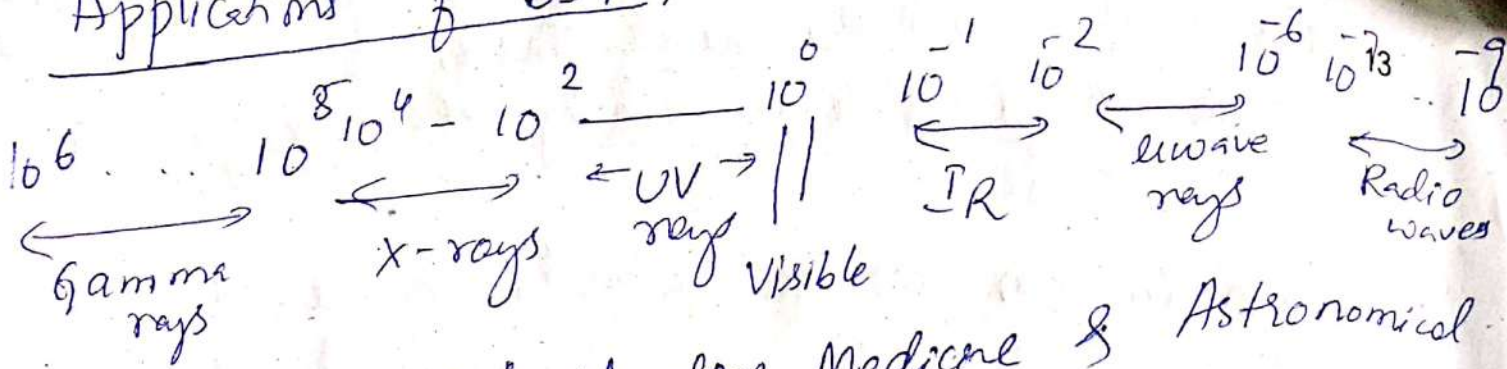 Applications of
10⁶ .. .. 10⁵ 10⁴ - 10² — 10⁰ 10⁻¹ 10⁻² 10⁻⁶ 10⁻⁷³ .. 10⁻⁹
Gamma rays X-rays UV rays Visible IR μwave rays Radio waves
Medicine & Astronomical